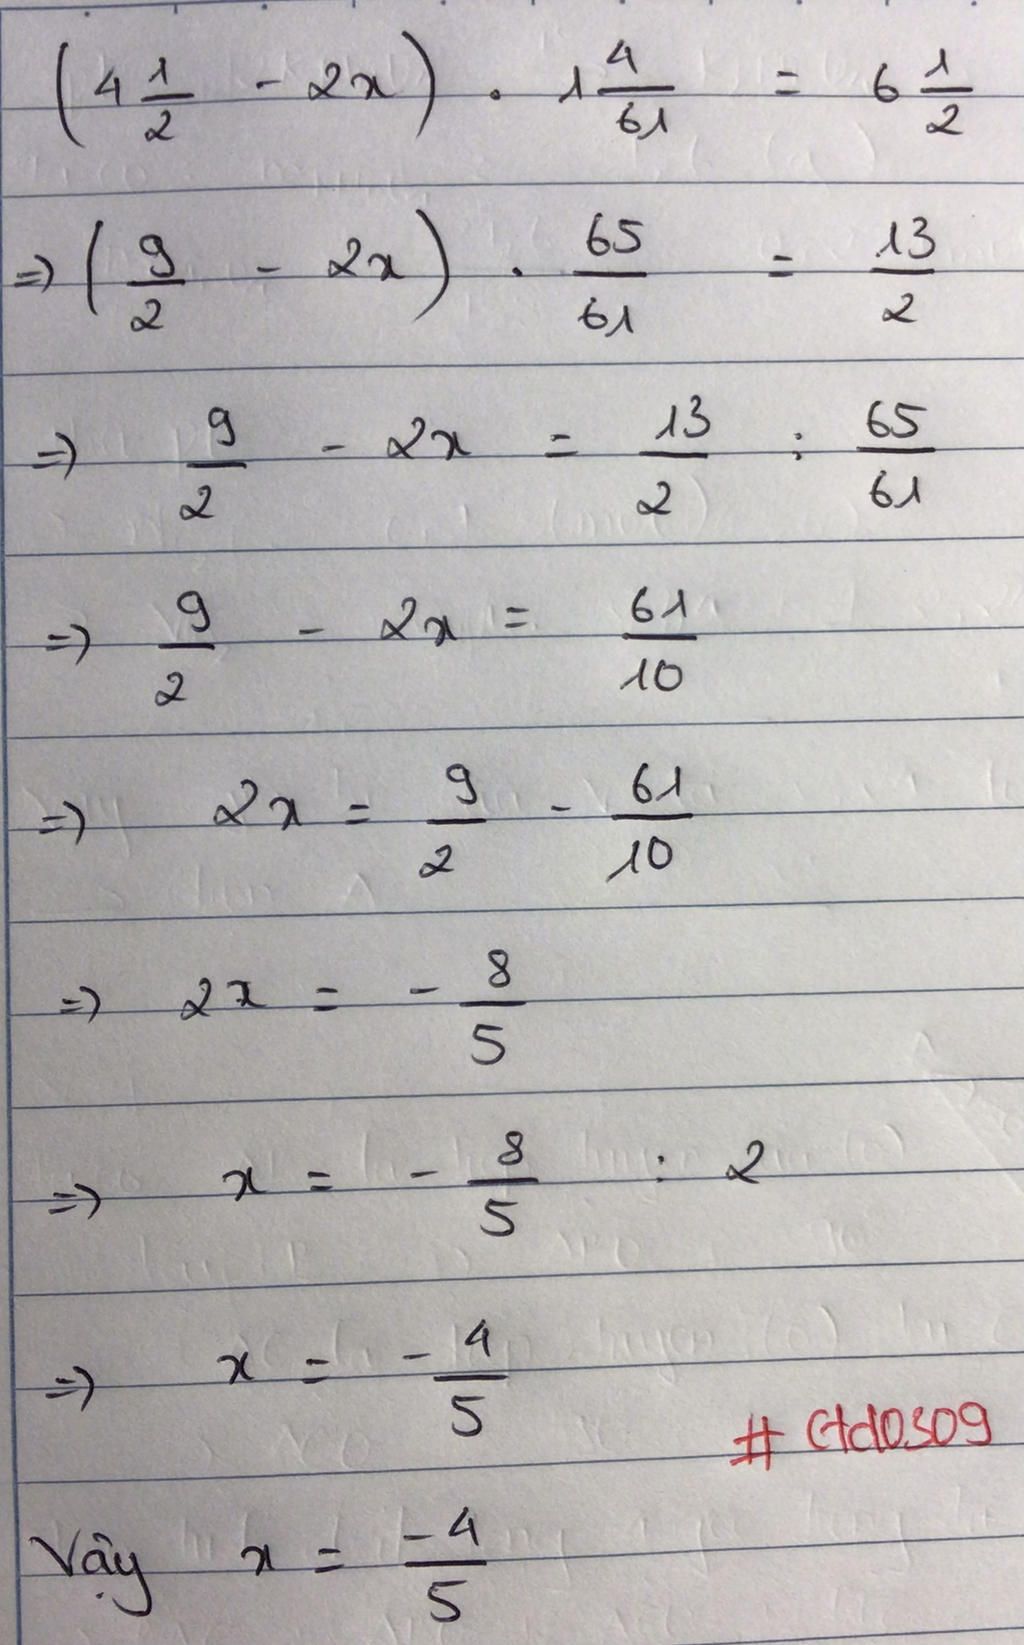 (4 1/2 - 2x) . 1 4/61 = 6 1/2
=> (9/2 - 2x) . 65/61 = 13/2
=> 9/2 - 2x = 13/2 : 65/61
=> 9/2 - 2x = 61/10
=> 2x = 9/2 - 61/10
=> 2x = - 8/5
=> x = - 8/5 : 2
=> x = - 4/5
# Ctd0309
Vậy x = -4/5